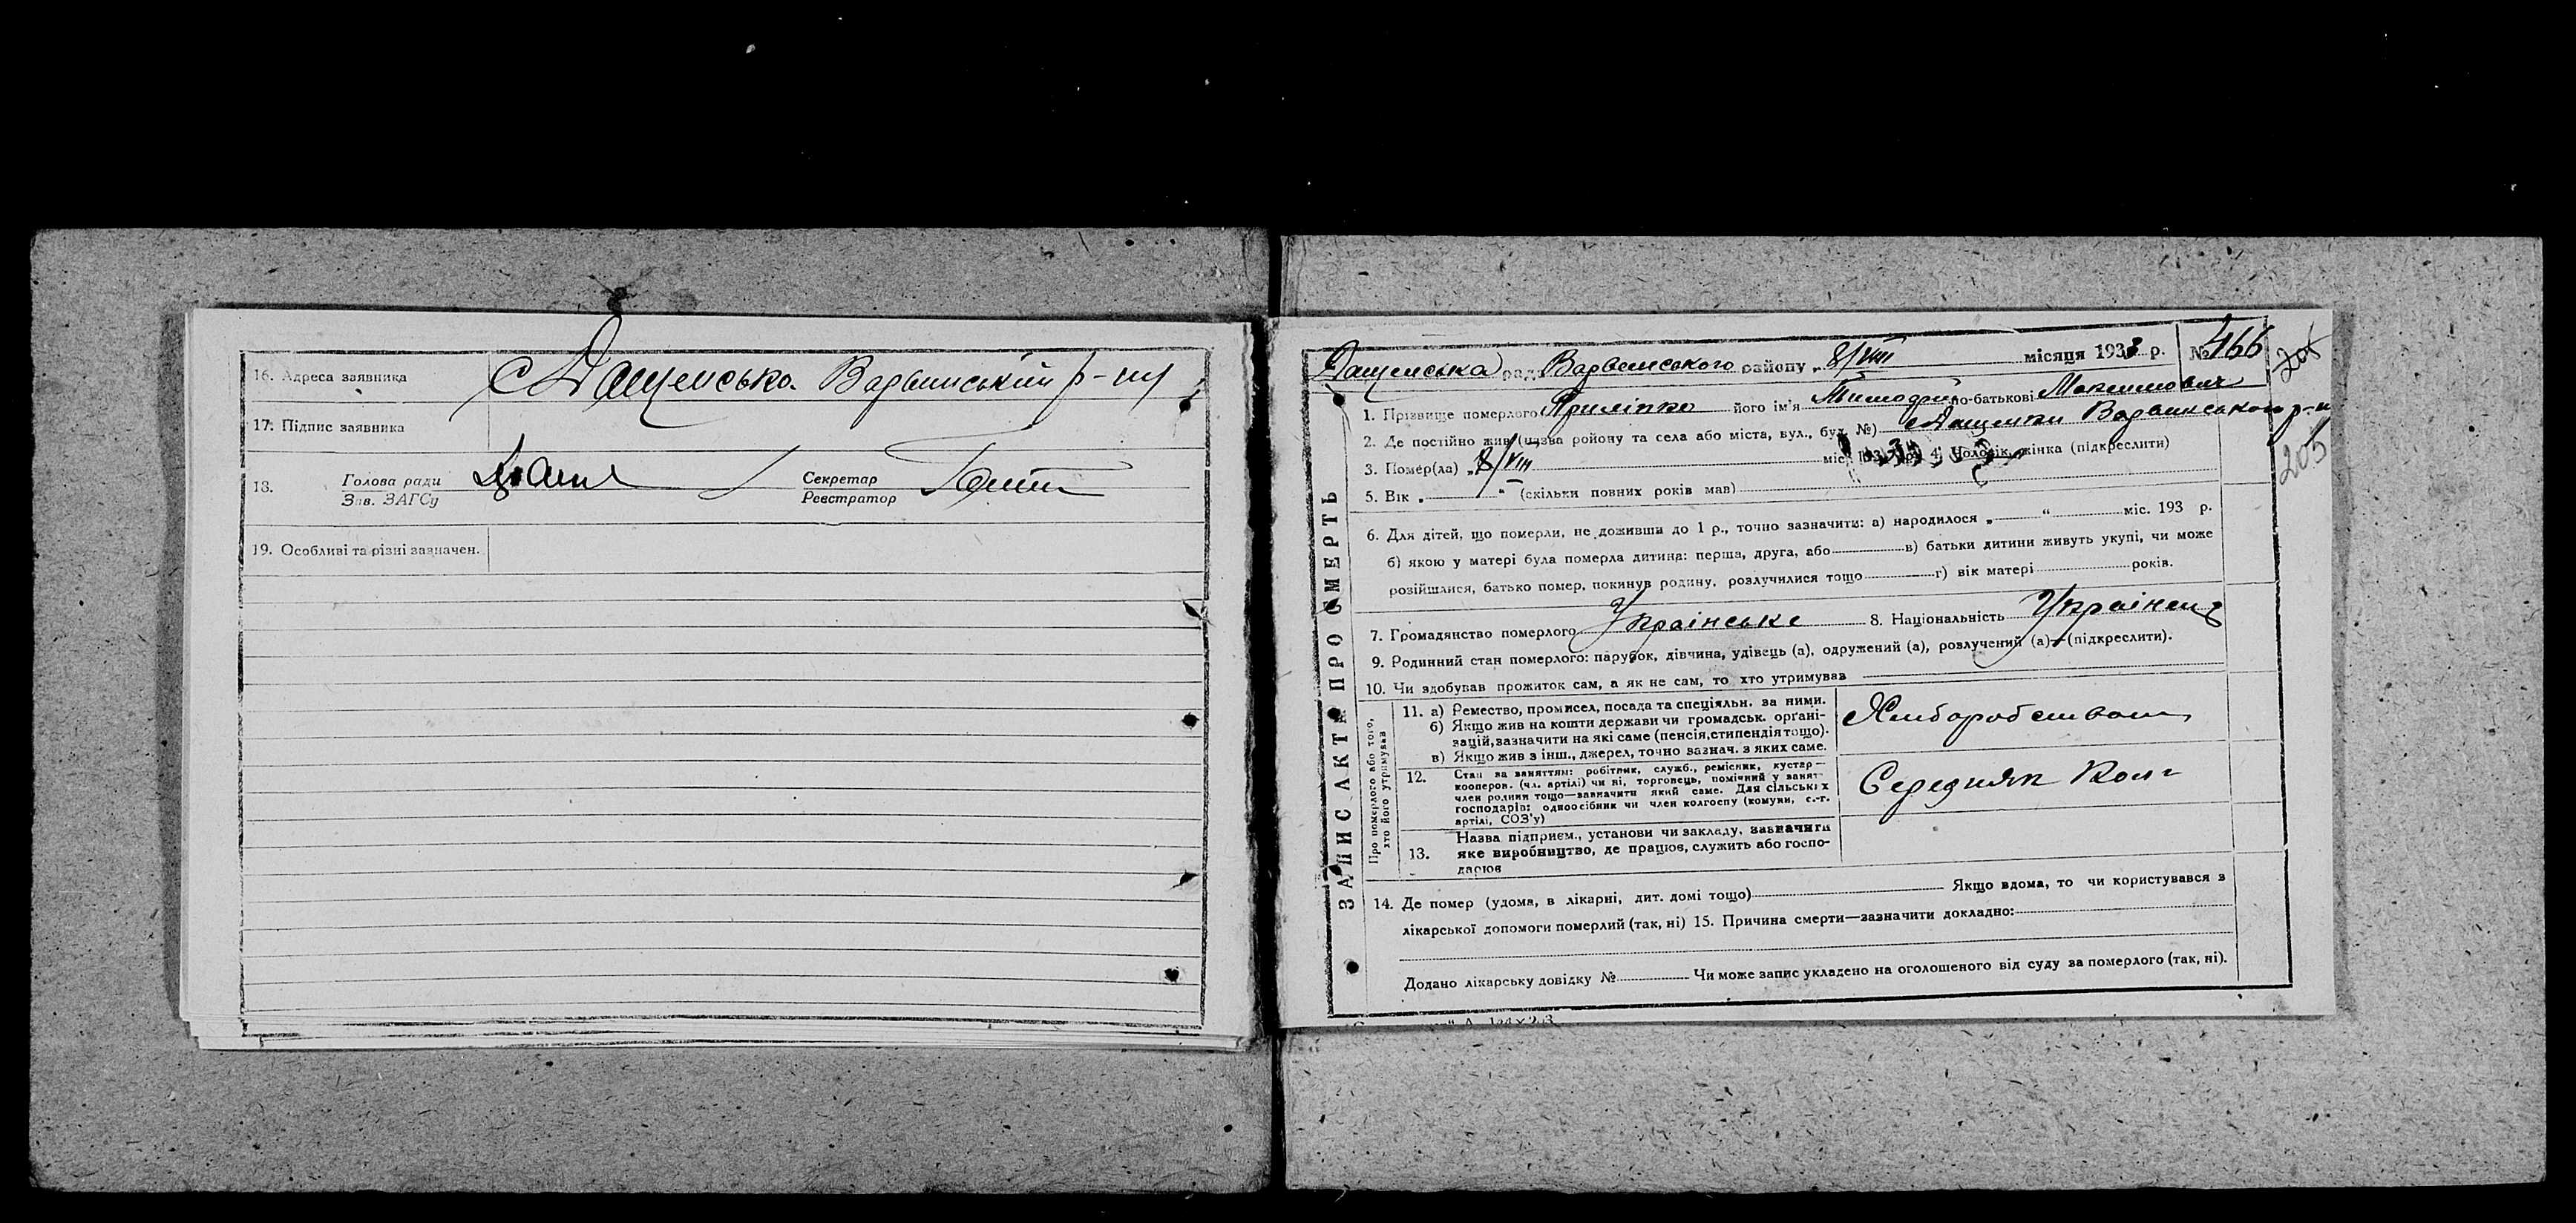 16. Адреса заявника с Дащенсько. Варвинський р-ну
17. Підпис заявника
18. Голова ради Секретар
Зав. ЗАГСу Реєстратор
19. Особливі та різні зазначен.
ЗАПИС АКТА ПРО СМЕРТЬ
Дащенська рад. Варвенського району „ 8/VIII місяця 1933 р. № 466
205
1. Прізвище померлого Приліпко його ім'я Тимофій по-батькові Максимович
2. Де постійно жив (назва району та села або міста, вул., буд. №) с Дащенки Варвинського р-н
205
3. Помер(ла) „ 8/VIII міс. 193 р. 4. Чоловік, жінка (підкреслити)
5. Вік „ “ (скільки повних років мав)
6. Для дітей, що померли, не доживши до 1 р., точно зазначити: а) народилося „ “ міс. 193 р.
б) якою у матері була померла дитина: перша, друга, або в) батьки дитини живуть укупі, чи може
розійшлися, батько помер, покинув родину, розлучилися тощо г) вік матері років.
7. Громадянство померлого Українське 8. Національність Українец
9. Родинний стан померлого: парубок, дівчина, удівець (а), одружений (а), розлучений (а)—(підкреслити).
10. Чи здобував прожиток сам, а як не сам, то хто утримував
Про померлого або того,
хто його утримував
11. а) Ремество, промисел, посада та спеціяльн. за ними.
б) Якщо жив на кошти держави чи громадськ. орґані-
зацій, зазначити на які саме (пенсія, стипендія тощо).
в) Якщо жив з інш., джерел, точно зазнач. з яких саме.
Хлиборобством
12. Стан за заняттям: робітник, служб., ремісник, кустар—
кооперов. (чл. артілі) чи ні, торговець, помічний у занят-
член родини тощо—зазначити який саме. Для сільських
господарів: одноосібник чи член колгоспу (комуни, с.-г.
артілі, СОЗ'у)
Середняк Колг
13. Назва підприєм., установи чи закладу, зазначити
яке виробництво, де працює, служить або госпо-
дарює
14. Де помер (удома, в лікарні, дит. домі тощо) Якщо вдома, то чи користувався з
лікарської допомоги померлий (так, ні) 15. Причина смерти—зазначити докладно:
Додано лікарську довідку № Чи може запис укладено на оголошеного від суду за померлого (так, ні).